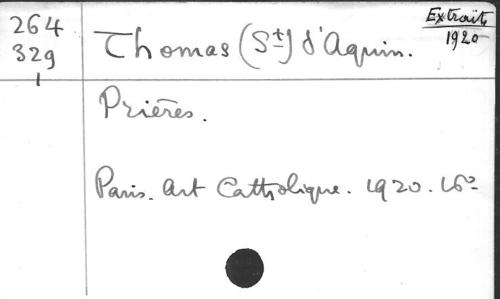 264
329
1
Extraits
1920
Thomas (St) d'Aquin.
Prières.
Paris. Art Catholique. 1920. 16°